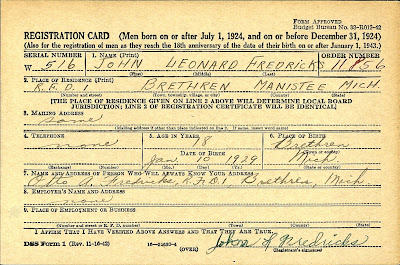 FORM APPROVED
Budget Bureau No. 33-R012-42
REGISTRATION CARD (Men born on or after July 1, 1924, and on or before December 31, 1924)
(Also for the registration of men as they reach the 18th anniversary of the date of their birth on or after January 1, 1943.)
SERIAL NUMBER 1. NAME (Print) ORDER NUMBER
W 516 JOHN LEONARD FREDRICKS 11856
(First) (Middle) (Last)
2. PLACE OF RESIDENCE (Print)
BRETHREN MANISTEE MICH
(Number and street) (Town, township, village, or city) (County) (State)
[THE PLACE OF RESIDENCE GIVEN ON LINE 2 ABOVE WILL DETERMINE LOCAL BOARD
JURISDICTION; LINE 2 OF REGISTRATION CERTIFICATE WILL BE IDENTICAL]
3. MAILING ADDRESS
Same
[Mailing address if other than place indicated on line 2. If same, insert word same]
4. TELEPHONE 5. AGE IN YEARS 6. PLACE OF BIRTH
none 18 Brethren
DATE OF BIRTH
Jan. 10 Mich
(Exchange) (Number) (Mo.) (Day) (Yr.) (State or country)
7. NAME AND ADDRESS OF PERSON WHO WILL ALWAYS KNOW YOUR ADDRESS
Fredricks, R.F.D.1, Brethren, Mich
8. EMPLOYER'S NAME AND ADDRESS
none
9. PLACE OF EMPLOYMENT OR BUSINESS
(Number and street or R. F. D. number) (Town) (County) (State)
I AFFIRM THAT I HAVE VERIFIED ABOVE ANSWERS AND THAT THEY ARE TRUE.
DSS Form 1 (Rev. 11-16-42) (OVER) John L Fredricks
(Registrant's signature)